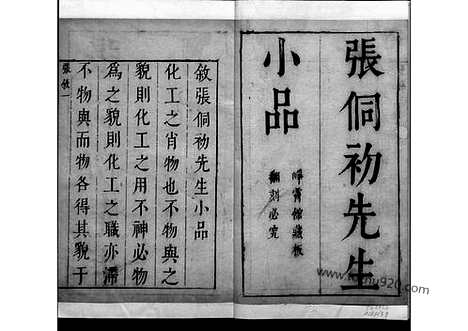 張侗初先生
小品
崢霄館藏板
翻刻必究
敘張侗初先生小品
化工之肖物也不物與之
貌則化工之用不神必物
爲之貌則化工之職亦滯
不物與而物各得其貌于
張敘一